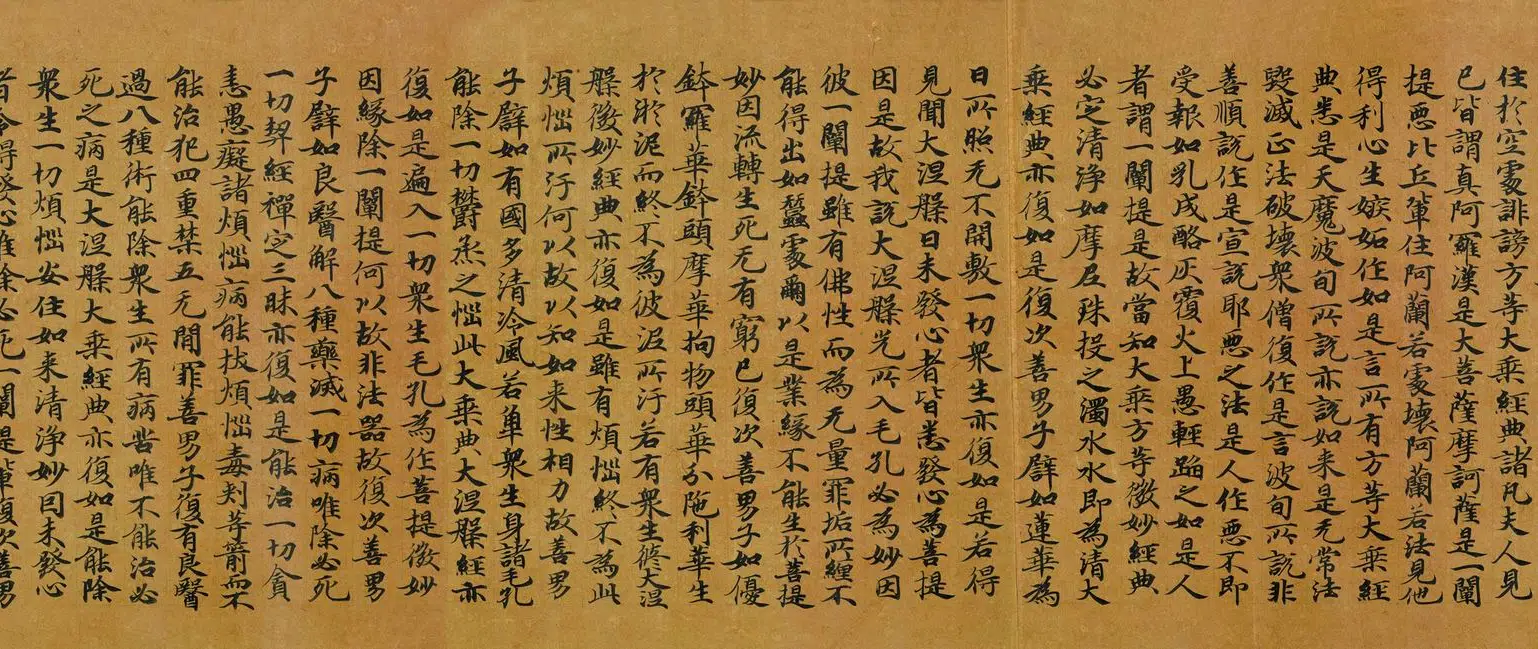 住於空處誹謗方等大乘經典諸凡夫人見
已皆謂真阿羅漢是大菩薩摩訶薩是一闡
提惡比丘輩住阿蘭若處壞阿蘭若法見他
得利心生嫉妬作如是言所有方等大乘經
典悉是天魔波旬所說亦說如来是无常法
毀滅正法破壞衆僧復作是言波旬所說非
善順說作是宣說耶惡之法是人作惡不即
受報如乳成酪灰覆火上愚輕蹈之如是人
者謂一闡提是故當知大乘方等微妙經典
必定清淨如摩尼珠投之濁水水即為清大
乘經典亦復如是復次善男子譬如蓮華為
日所照无不開敷一切衆生亦復如是若得
見聞大涅槃日未發心者皆悉發心為菩提
因是故我說大涅槃光所入毛孔必為妙因
彼一闡提雖有佛性而為无量罪垢所纏不
能得出如蠶處繭以是業緣不能生於菩提
妙因流轉生死无有窮已復次善男子如優
鉢羅華鉢頭摩華拘物頭華分陁利華生
於淤泥而終不為彼泥所汙若有衆生修大涅
槃微妙經典亦復如是雖有煩惱終不為此
煩惱所汙何以故以知如来性相力故善男
子譬如有國多清冷風若单衆生身諸毛孔
能除一切欝烝之惱此大乘典大涅槃經亦
復如是遍入一切衆生毛孔為作菩提微妙
因緣除一闡提何以故非法器故復次善男
子譬如良醫解八種藥滅一切病唯除必死
一切契經禪定三昧亦復如是能治一切貪
恚愚癡諸煩惱病能拔煩惱毒刾等箭而不
能治犯四重禁五无間罪善男子復有良醫
過八種術能除衆生所有病苦唯不能治必
死之病是大涅槃大乘經典亦復如是能除
衆生一切煩惱安住如来清淨妙因未發心
者令得發心唯除必死一闡提輩復次善男